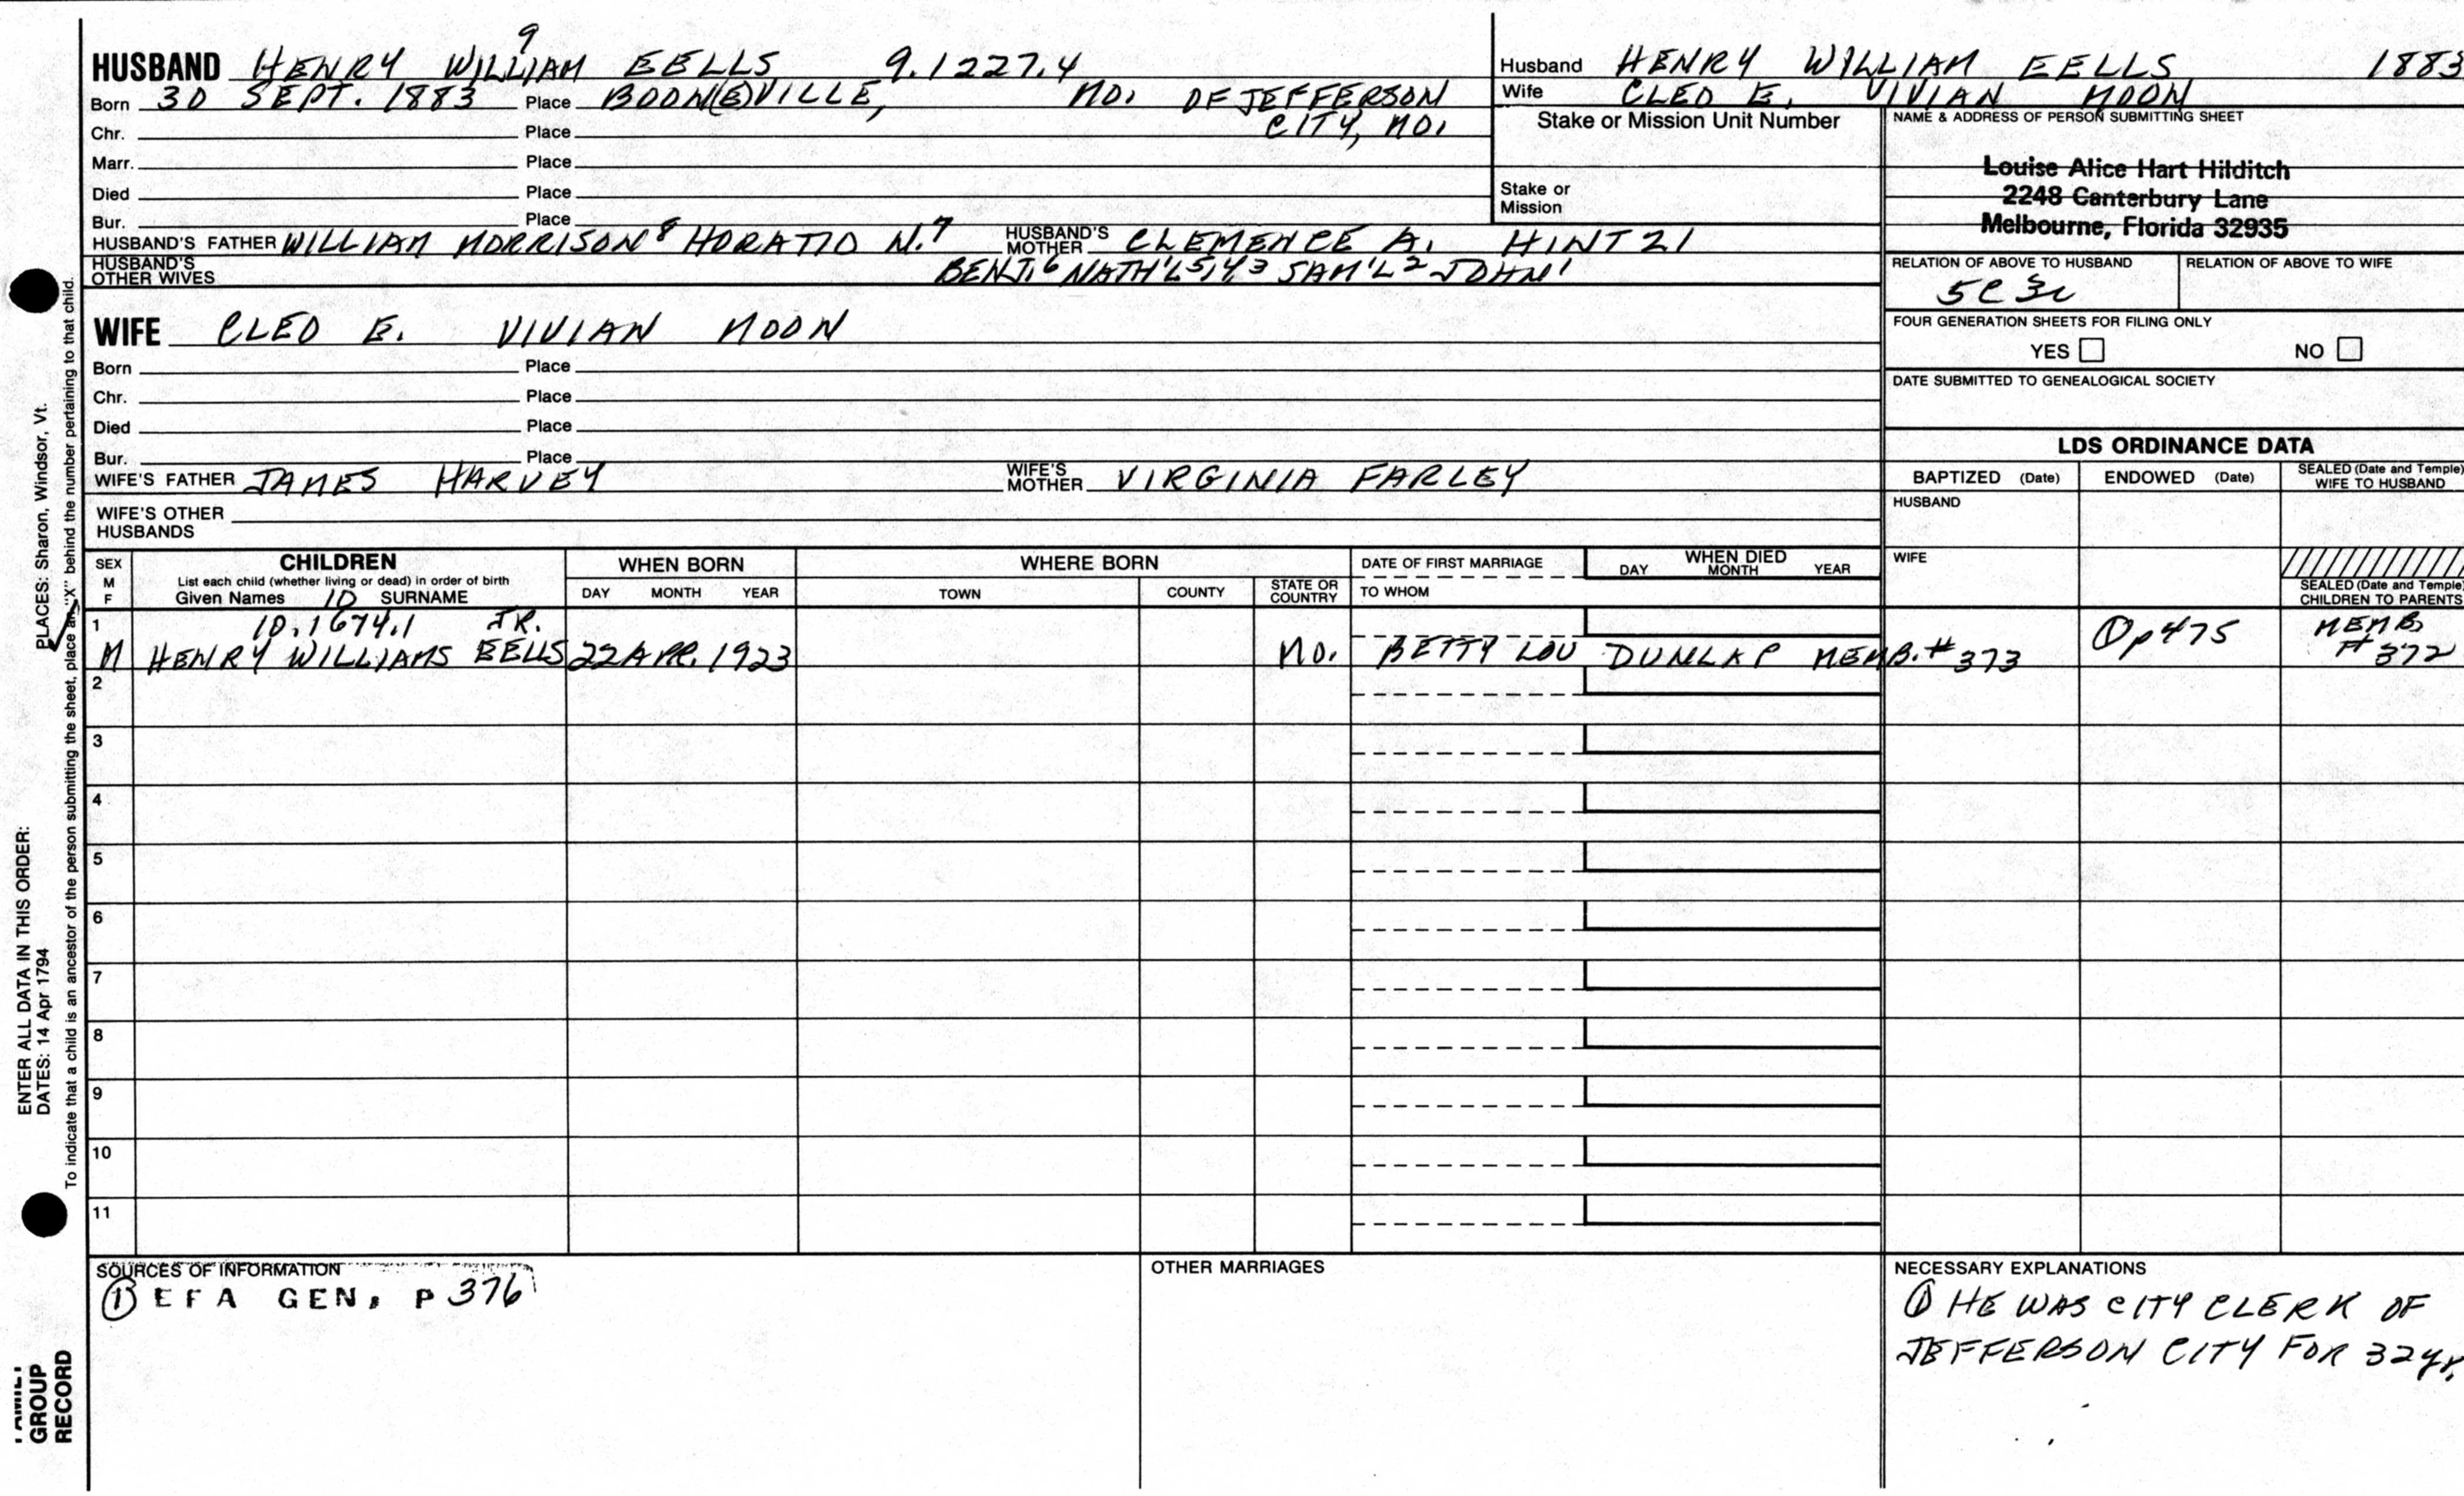 HUSBAND HENRY WILLIAM 9 EELLS 9.1227.4
Born 30 SEPT. 1883 Place BOON(E)VILLE, MO. OF JEFFERSON
CITY, MO.
Chr. Place
Marr. Place
Died Place
Bur. Place
HUSBAND'S FATHER WILLIAM MORRISON 8 HORATIO N.7 HUSBAND'S MOTHER CLEMENCE A. HINTZI
HUSBAND'S OTHER WIVES BENJ.6 NATH'L 5,4,3 SAM'L 2 JOHN 1
Husband HENRY WILLIAM EELLS 1883
Wife CLEO E. VIVIAN MOON
Stake or Mission Unit Number
Stake or Mission
NAME & ADDRESS OF PERSON SUBMITTING SHEET
Louise Alice Hart Hilditch
2248 Canterbury Lane
Melbourne, Florida 32935
RELATION OF ABOVE TO HUSBAND RELATION OF ABOVE TO WIFE
5C 3r
FOUR GENERATION SHEETS FOR FILING ONLY
YES NO
DATE SUBMITTED TO GENEALOGICAL SOCIETY
WIFE CLEO E. VIVIAN MOON
Born Place
Chr. Place
Died Place
Bur. Place
WIFE'S FATHER JAMES HARVEY WIFE'S MOTHER VIRGINIA FARLEY
WIFE'S OTHER
HUSBANDS
LDS ORDINANCE DATA
BAPTIZED (Date) ENDOWED (Date) SEALED (Date and Temple) WIFE TO HUSBAND
HUSBAND
WIFE
SEALED (Date and Temple) CHILDREN TO PARENTS
SEX M F
CHILDREN
List each child (whether living or dead) in order of birth
Given Names 10 SURNAME
WHEN BORN
DAY MONTH YEAR
WHERE BORN
TOWN COUNTY STATE OR COUNTRY
DATE OF FIRST MARRIAGE
TO WHOM
WHEN DIED
DAY MONTH YEAR
1 10.1674.1 JR.
M HENRY WILLIAMS EELLS 22 APR. 1923 MO. BETTY LOU DUNLAP MEMB.# 373 ① p475 MEMB # 372
2
3
4
5
6
7
8
9
10
11
SOURCES OF INFORMATION
① EFA GEN. P 376
OTHER MARRIAGES
NECESSARY EXPLANATIONS
① HE WAS CITY CLERK OF
JEFFERSON CITY FOR 32yr.
ENTER ALL DATA IN THIS ORDER:
DATES: 14 Apr 1794 PLACES: Sharon, Windsor, Vt.
To indicate that a child is an ancestor of the person submitting the sheet, place an "X" behind the number pertaining to that child.
FAMILY
GROUP
RECORD